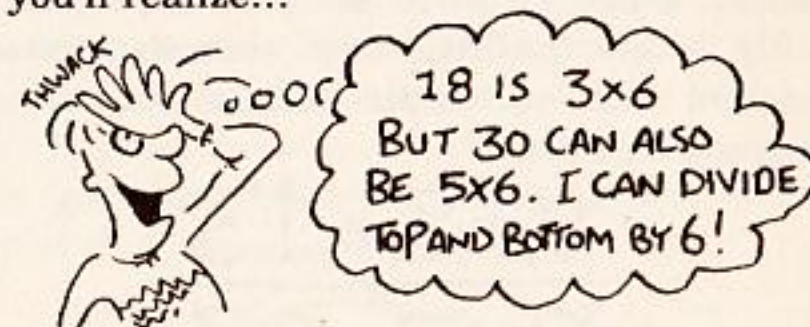 you'll realize...
THWACK
18 IS 3×6
BUT 30 CAN ALSO
BE 5×6. I CAN DIVIDE
TOP AND BOTTOM BY 6!